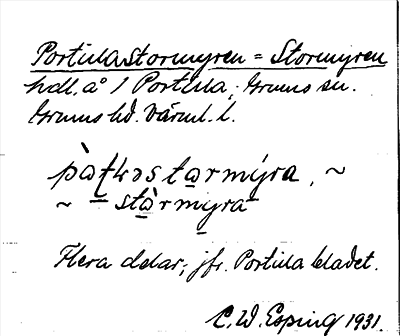 Portillastormyren = Stormyren
hdl. å 1 Portilla; Grums sn.
Grums hd. Värml. l.
pàt̯kəsta̱rmýra, ~
~ – stà̱rmyra
Flera delar; jfr. Portilla bladet.
C. W. Esping 1931.